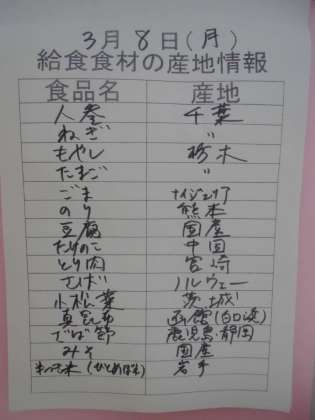 3月8日(月)
給食食材の産地情報
食品名 産地
人参 千葉
ねぎ 〃
もやし 栃木
たまご 〃
ごま ナイジェリア
のり 熊本
豆腐 国産
たけのこ 中国
とり肉 宮崎
さば ノルウェー
小松菜 茨城
真昆布 函館(白口浜)
さば節 鹿児島・静岡
みそ 国産
(ひとめぼれ) 岩手